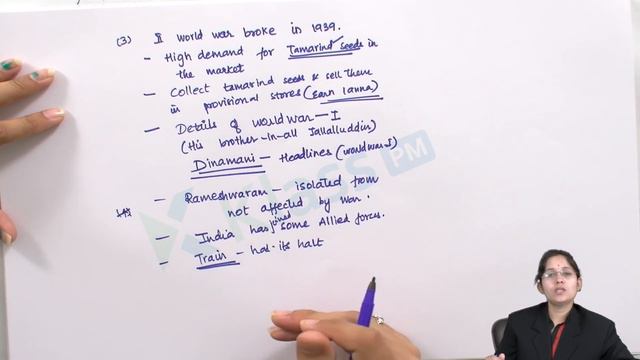 (3) II world war broke in 1939.
- High demand for Tamarind seeds in
the market
- Collect tamarind seeds & sell them
in provisional stores (earn 1anna)
- Details of world war - I
(His brother-in-all Jallalluddin)
Dinamani - Headlines (world war I)
- Rameshwaram - isolated from
not affected by war.
- India has joined some Allied forces.
- Train - had its halt
Klass PM